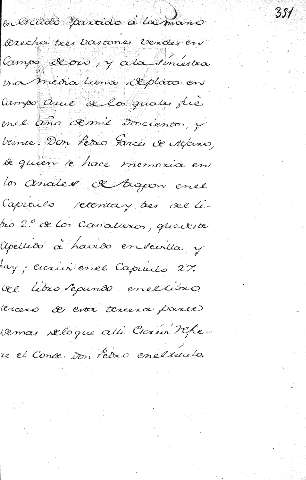 351
un Escudo partido á la mano
derecha tres bastones verdes en
Campo de oro, y á la siniestra
una media luna de plata en
Campo Azul de los quales fué
en el año de mil Doscientos, y
veinte. Don Pedro Garcés de Alfaro,
de quien se hace memoria en
los Anales de Aragon en el
Capitulo setenta y tres del li-
bro 2º de los Cavalleros, que de este
Apellido á havido en Sevilla y
hay; en el Capitulo 27.
del libro segundo en el libro
tercero de esta tercera parte
demas de lo que alli refie-
re el Conde Don Pedro en el titulo